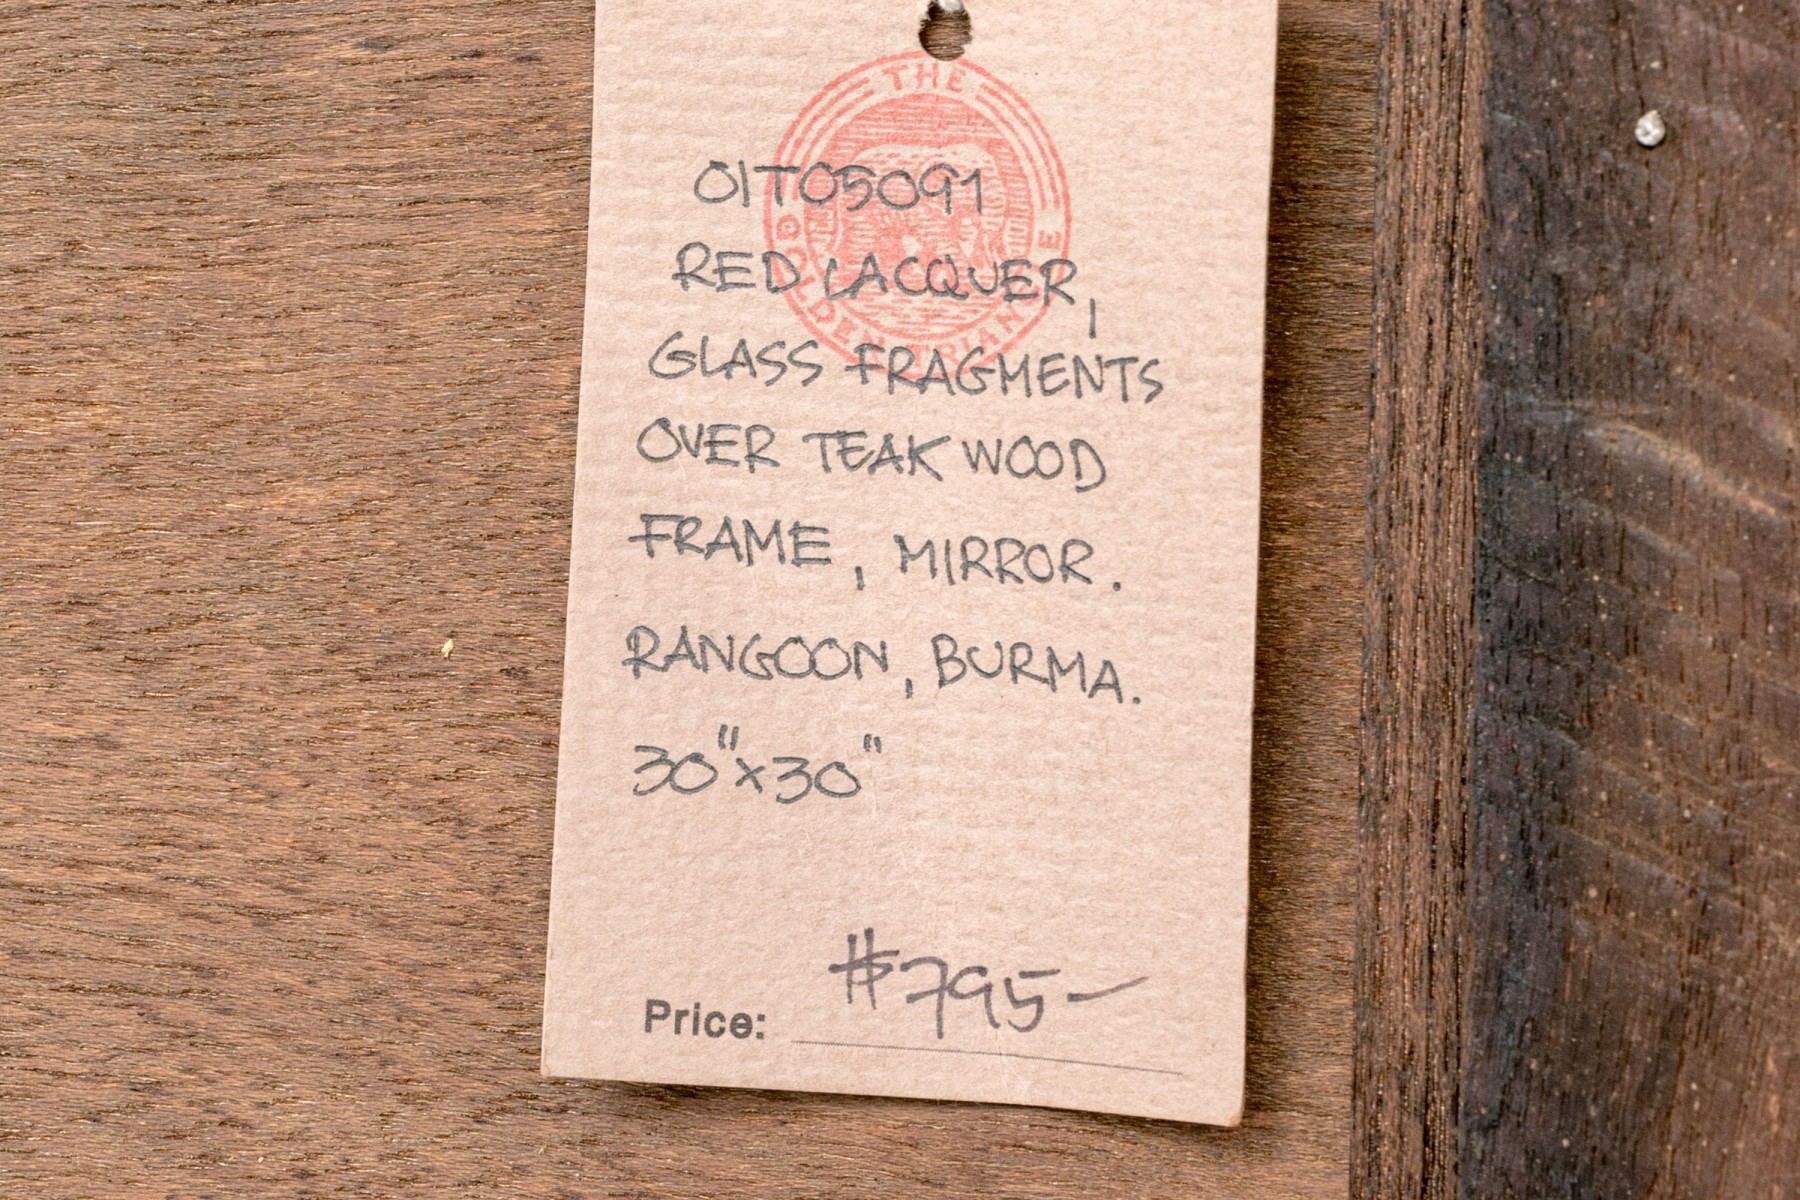 THE
GOLDEN TRIANGLE
01T05091
RED LACQUER,
GLASS FRAGMENTS
OVER TEAK WOOD
FRAME, MIRROR.
RANGOON, BURMA.
30"x30"
Price: $795-